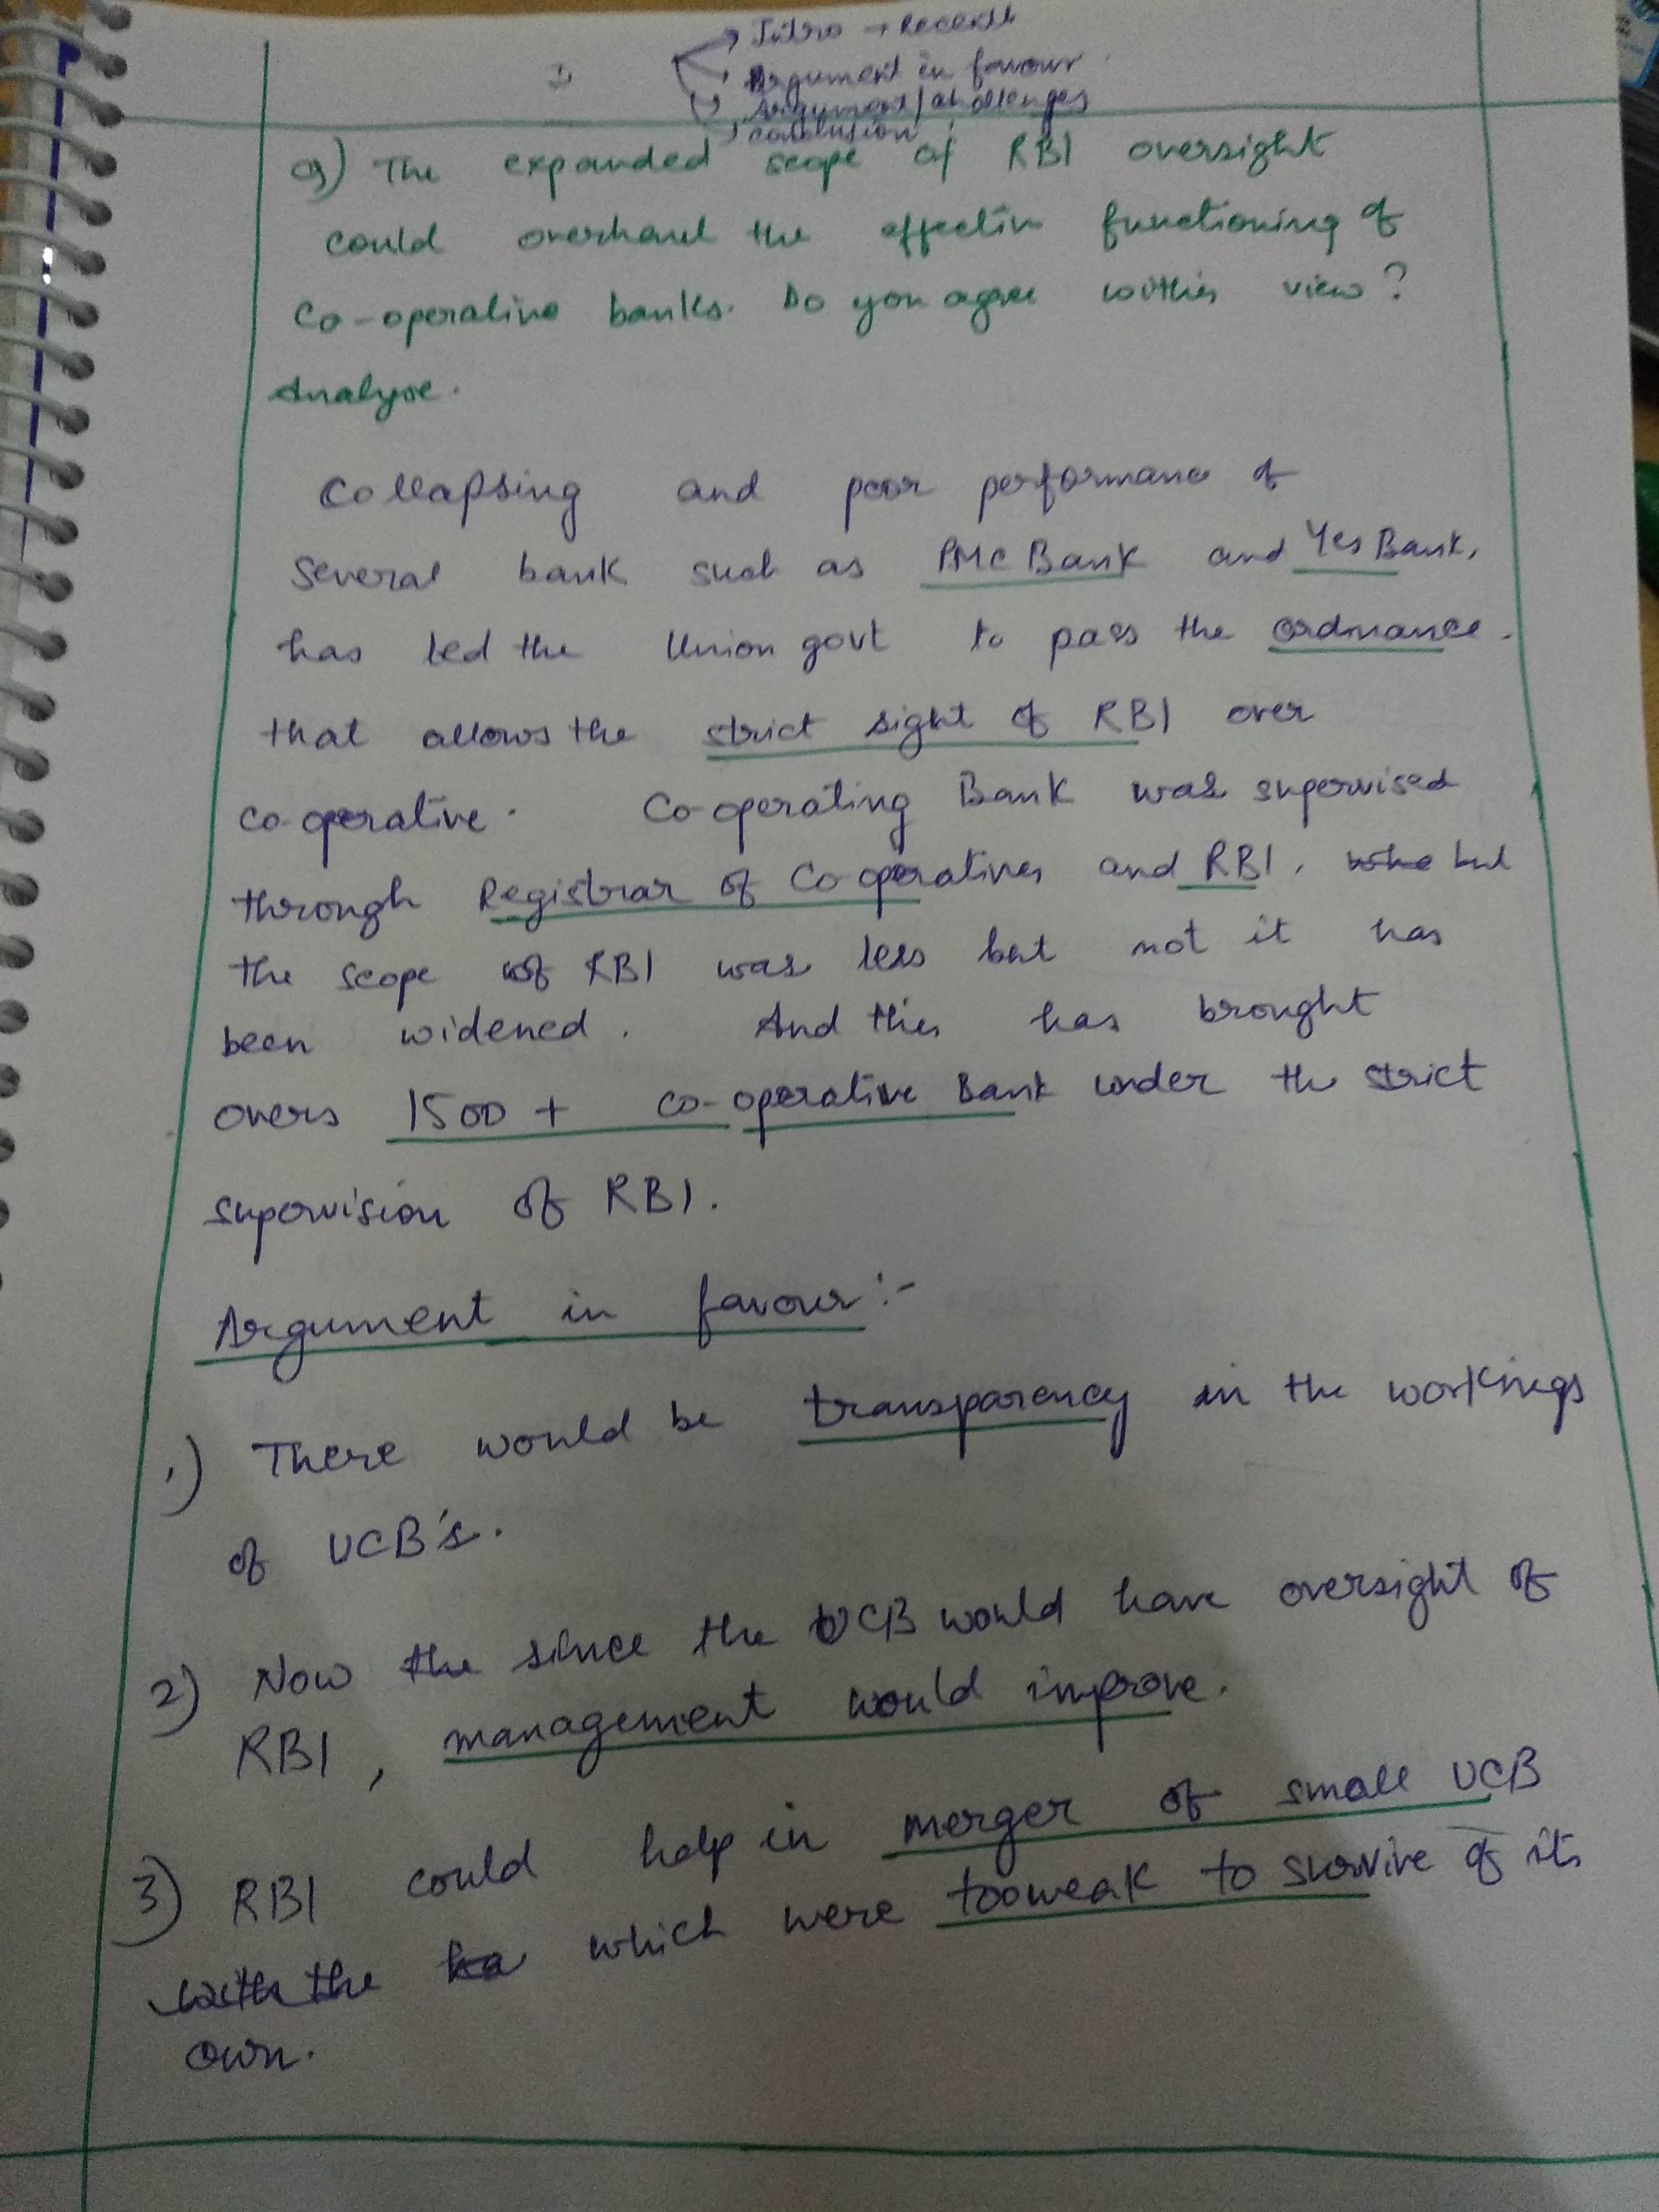 Intro → Recent
Argument in favour
Argument/challenges
conclusion
Q) The expanded scope of RBI oversight
could overhaul the effective functioning of
Co-operative banks. Do you agree with this view?
Analyse.
Collapsing and poor performance of
several bank such as PMC Bank and Yes Bank,
has led the Union govt to pass the ordinance.
that allows the strict sight of RBI over
co-operative. Co-operating Bank was supervised
through Registrar of Co operatives and RBI, but
the scope of RBI was less but not it has
been widened. And this has brought
overs 1500+ co-operative Bank under the strict
supervision of RBI.
Argument in favour:-
1.) There would be transparency in the workings
of UCB's.
2) Now the since the UCB would have oversight of
RBI, management would improve.
3) RBI could help in merger of small UCB
with the which were too weak to survive of its
own.